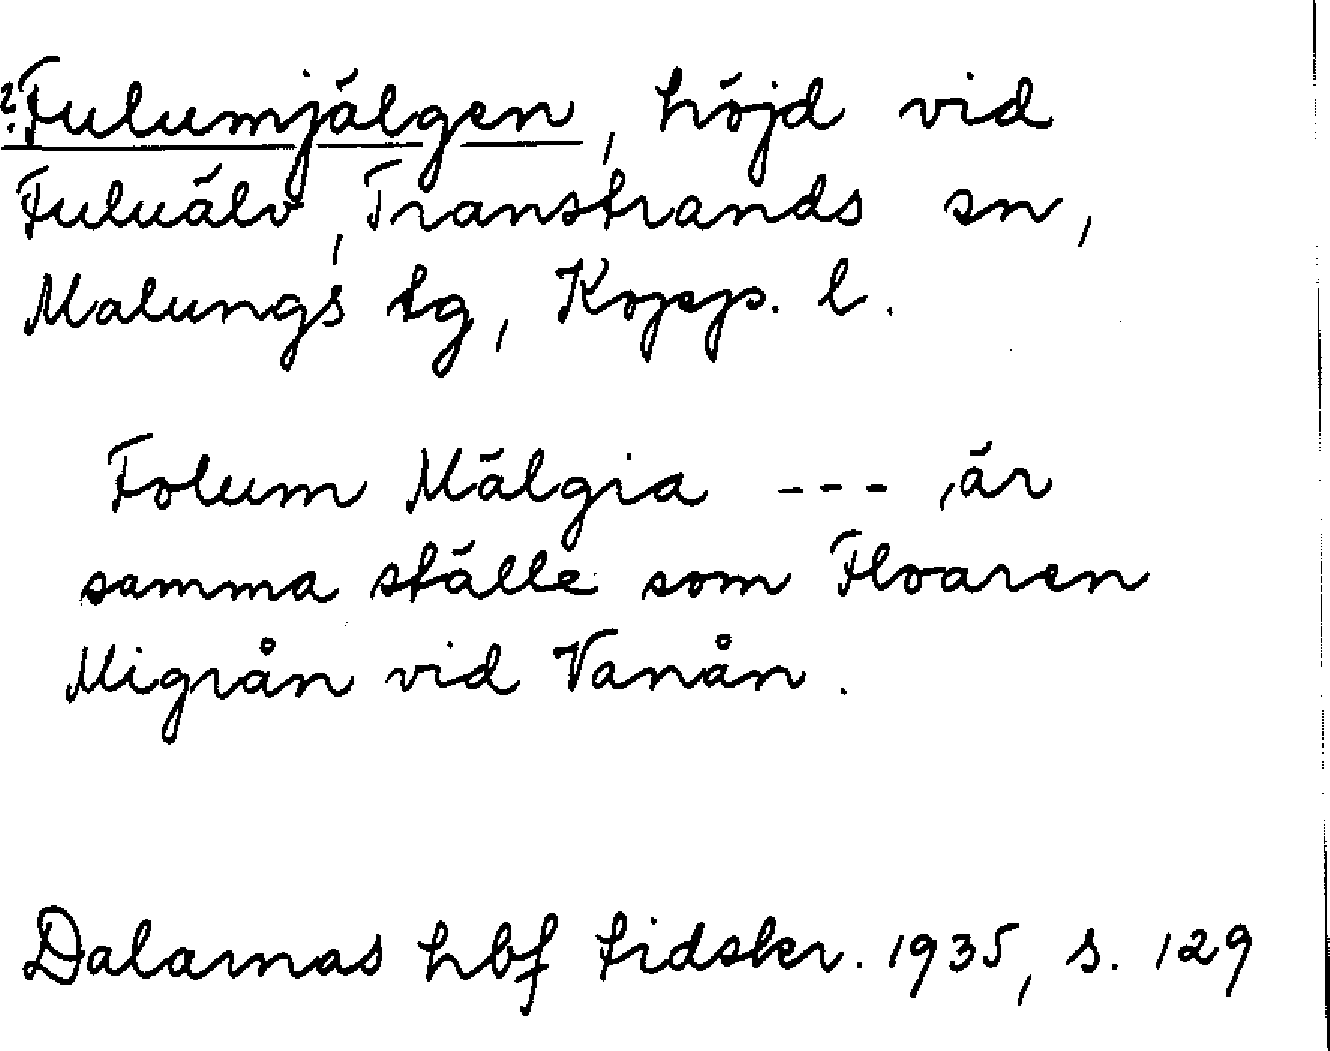 ?Fulumjälgen, höjd vid
Fuluälv, Transtrands sn,
Malungs tg, Kopp. l.
Folum Mälgia --- är
samma ställe som Floaren
Migrån vid Vanån.
Dalarnas hbf tidskr. 1935, s. 129